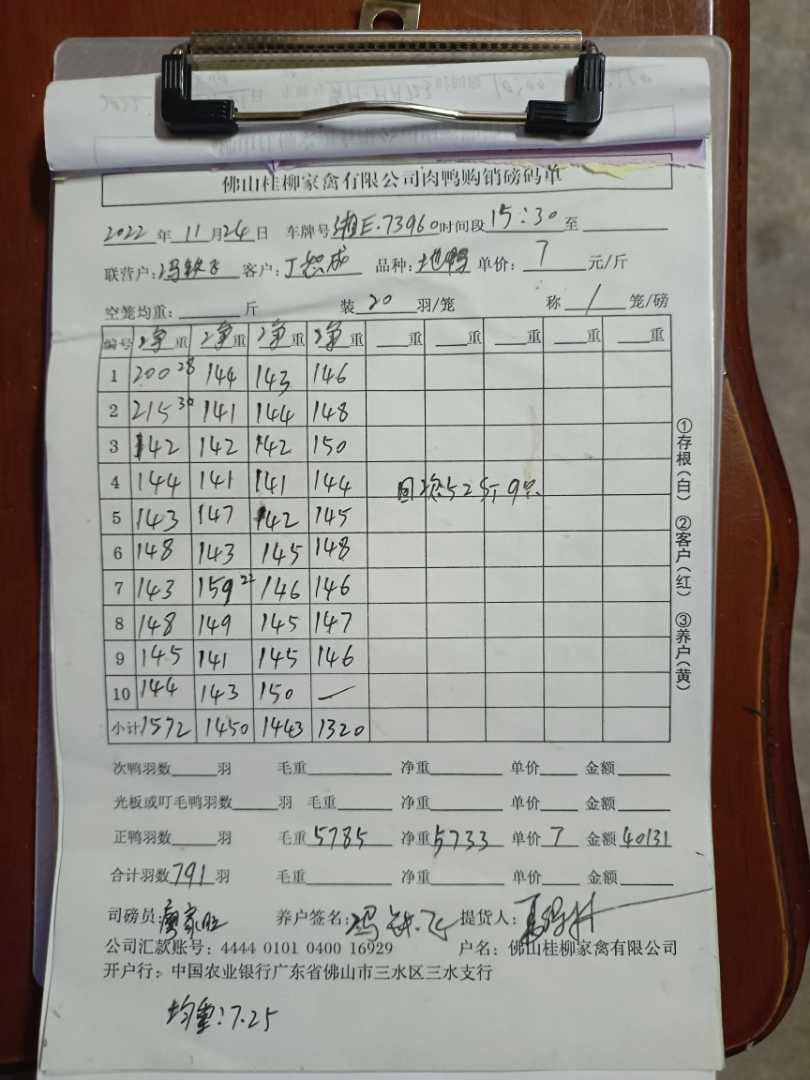 佛山桂柳家禽有限公司肉鸭购销磅码单
2022年11月24日 车牌号湘E.73960时间段15:30至
联营户:冯铁飞 客户: 品种:土鸭 单价:7元/斤
空笼均重:斤 装20羽/笼 称1笼/磅
编号 净重 净重 净重 净重 重 重 重 重 重
1 200 28 144 143 146
2 215 30 141 144 148
3 142 142 142 150
4 144 141 141 144 回 52斤9只
5 143 147 142 145
6 148 143 145 148
7 143 159 22 146 146
8 148 149 145 147
9 145 141 145 146
10 144 143 150 —
小计 1572 1450 1443 1320
①存根(白) ②客户(红) ③养户(黄)
次鸭羽数羽 毛重 净重 单价 金额
光板或叮毛鸭羽数羽 毛重 净重 单价 金额
正鸭羽数羽 毛重5785 净重5733 单价7 金额40131
合计羽数791羽 毛重 净重 单价 金额
司磅员:廖家旺 养户签名:冯铁飞 提货人:
公司汇款账号:4444 0101 0400 16929 户名:佛山桂柳家禽有限公司
开户行:中国农业银行广东省佛山市三水区三水支行
均重:7.25